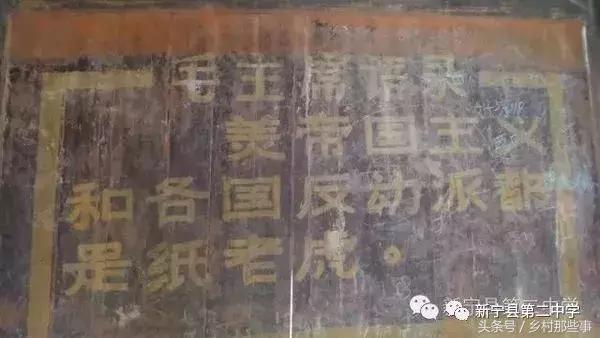 毛主席语录
美帝国主义
和各国反动派都
是纸老虎。
新宁县第二中学
新宁县第二中学
头条号 / 乡村那些事